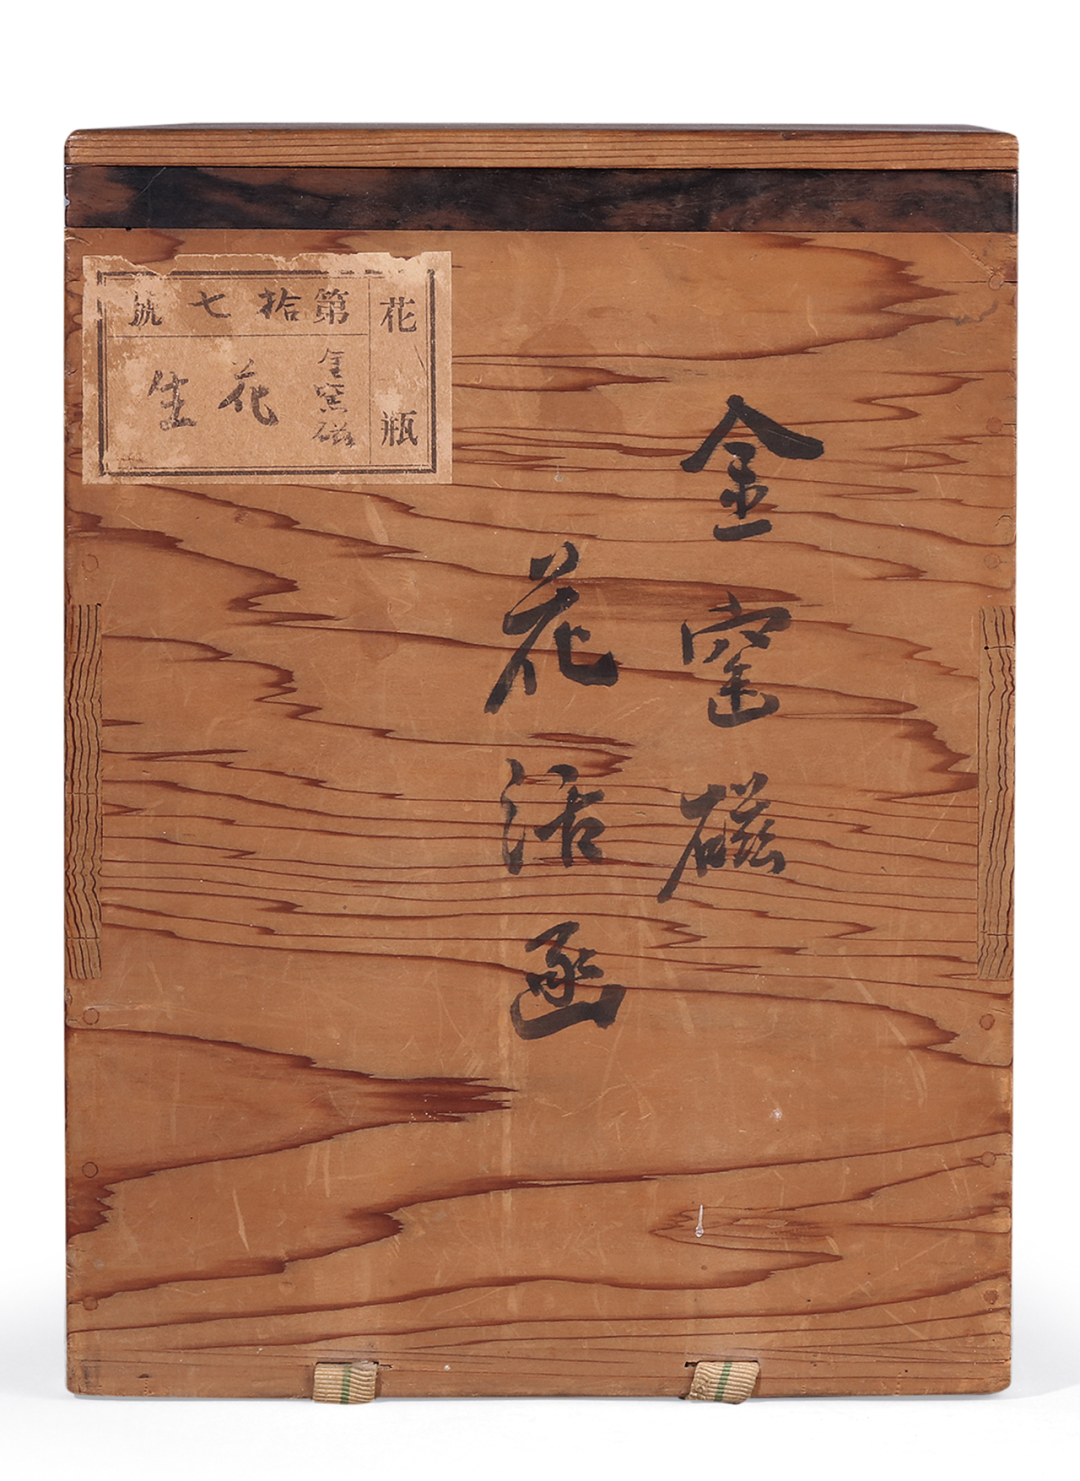 金窑磁
花活函
花瓶
第拾七號
金窯磁
花生